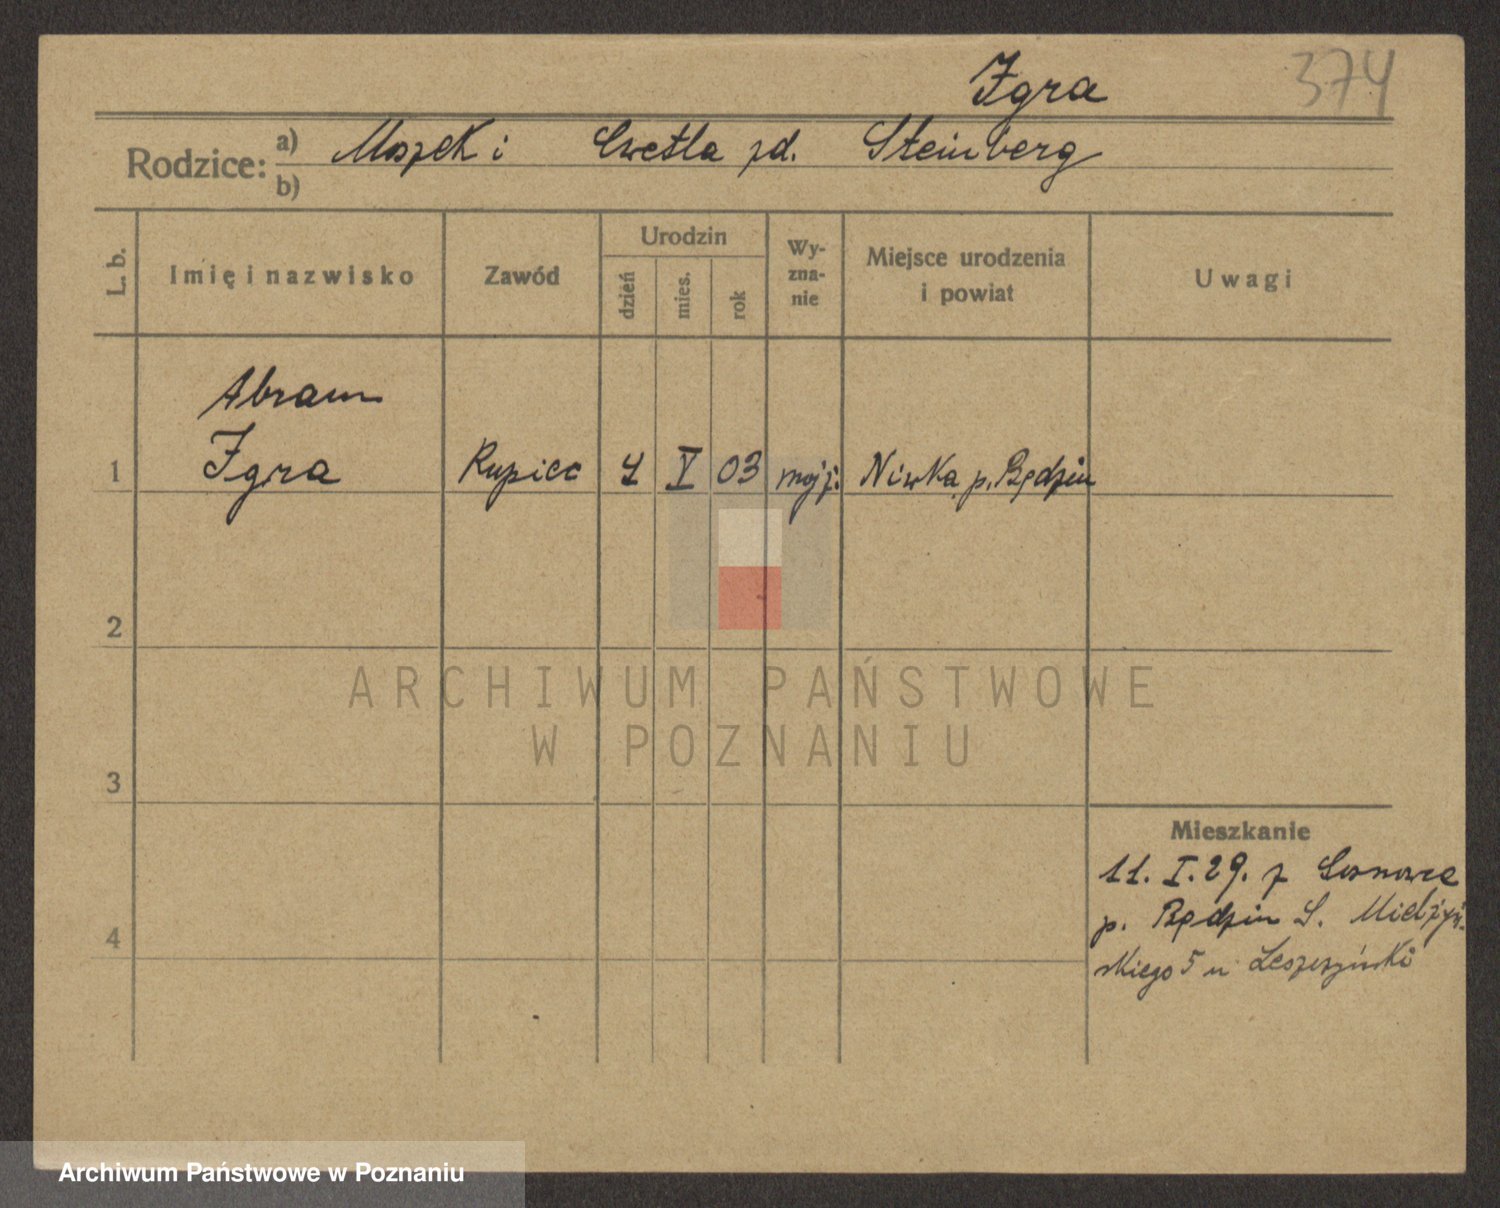 Igra 374
Rodzice: a) Moszek i Cwetla zd. Steinberg
b)
L. b. Imię i nazwisko Zawód Urodzin dzień mies. rok Wy-zna-nie Miejsce urodzenia i powiat Uwagi
Abram
1 Igra Kupiec 4 V 03 mojż. Niwka p. Będzin
2
ARCHIWUM PAŃSTWOWE
W POZNANIU
3
Mieszkanie
11. I. 29. z Sosnowca
4 p. Będzin S. Mielżyń-
skiego 5 u Leszczyński
Archiwum Państwowe w Poznaniu